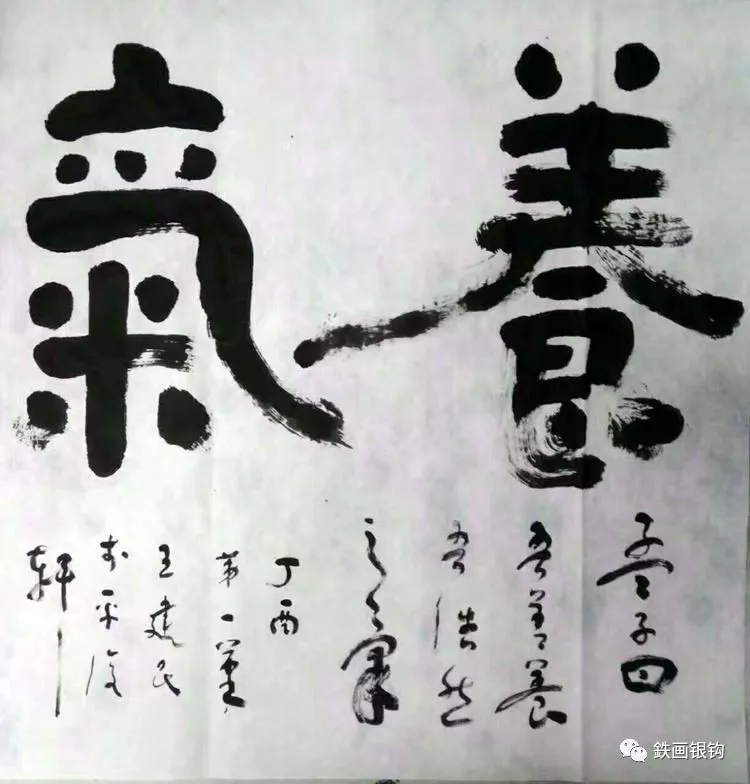 養氣
孟子曰
吾善養
吾浩然
之氣
丁酉
第一筆
王建民
於平
軒
鉄画银钩